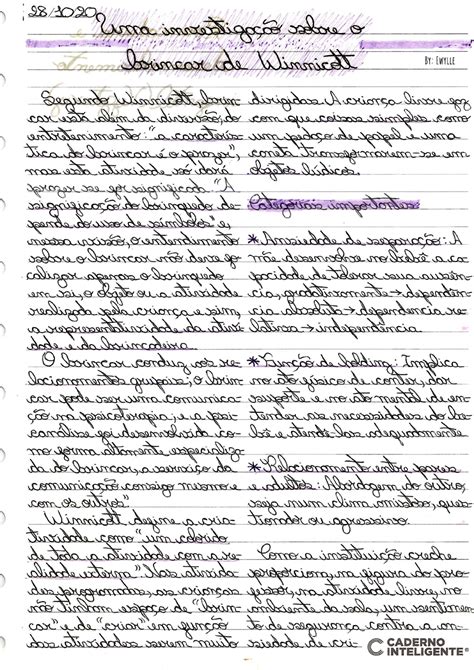 28/10/20
Uma investigação sobre o
brincar de Winnicott
By: Ewylle
Segundo Winnicott, brin-
car está além da diversão, do
entretenimento: "a caracterís-
tica do brincar é o prazer",
mas esta atividade só dará
prazer se for significada. "A
significação do brinquedo de-
pende do uso de símbolos" e,
nessa visão, o entendimento
sobre o brincar não deve fo-
calizar apenas o brinquedo
em si, o objeto ou a atividade
realizada pela criança e sim,
a representatividade da ativi-
dade e da brincadeira.
O brincar conduz aos re-
lacionamentos grupais; o brin-
car pode ser uma comunica-
ção na psicoterapia; e a psi-
canálise foi desenvolvida co-
mo forma altamente especializa-
da do brincar, a serviço da
comunicação consigo mesmo e
com os outros"
Winnicott define a cria-
tividade como "um colorido
de toda a atividade com a re-
alidade externa". Nas ativida-
des programadas, as crianças
não tinham espaço de "brin-
car" e de "criar" em função
das atividades serem muito
dirigidas. A criança livre faz
com que coisas simples como
um pedaço de papel e uma
caneta transformarem-se em
objetos lúdicos.
Categorias importantes
* Ansiedade de separação: A
mãe desenvolve no bebê a ca-
pacidade de tolerar sua ausên-
cia, gradativamente → dependên-
cia absoluta → dependencia re-
lativa → independância
* Função de holding: Implica
no ato físico de conter, dar
suporte e no ato mental de en-
tender as necessidades do be-
bê e atendê-las adequadamente
* Relacionamento entre pares
e adultos: Abordagem do outro,
seja num clima amistoso, ques-
tionador ou agressivo.
Como a instituição creche
proporciona, na figura do pro-
fessor, na atividade livre, no
ambiente da sala, um sentimen-
to de segurança contra a an-
siedade de cri-
CADERNO
INTELIGENTE®